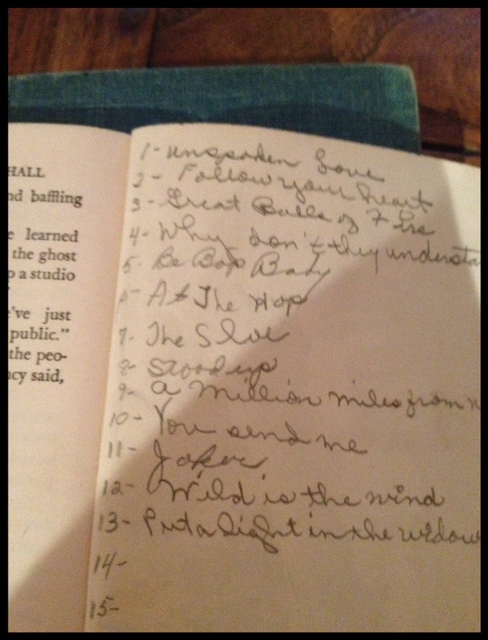 HALL
nd baffling
e learned
the ghost
o a studio
've just
public."
the peo-
cy said,
1- unspoken Love
2- Follow your heart
3- Great Balls of Fire
4- Why don't they understa
5- Be Bop Baby
6- At The Hop
7- The Slue
8- Stood up
9- a Million miles from n
10- You send me
11- Joker
12- Wild is the wind
13- Put a light in the widow
14-
15-